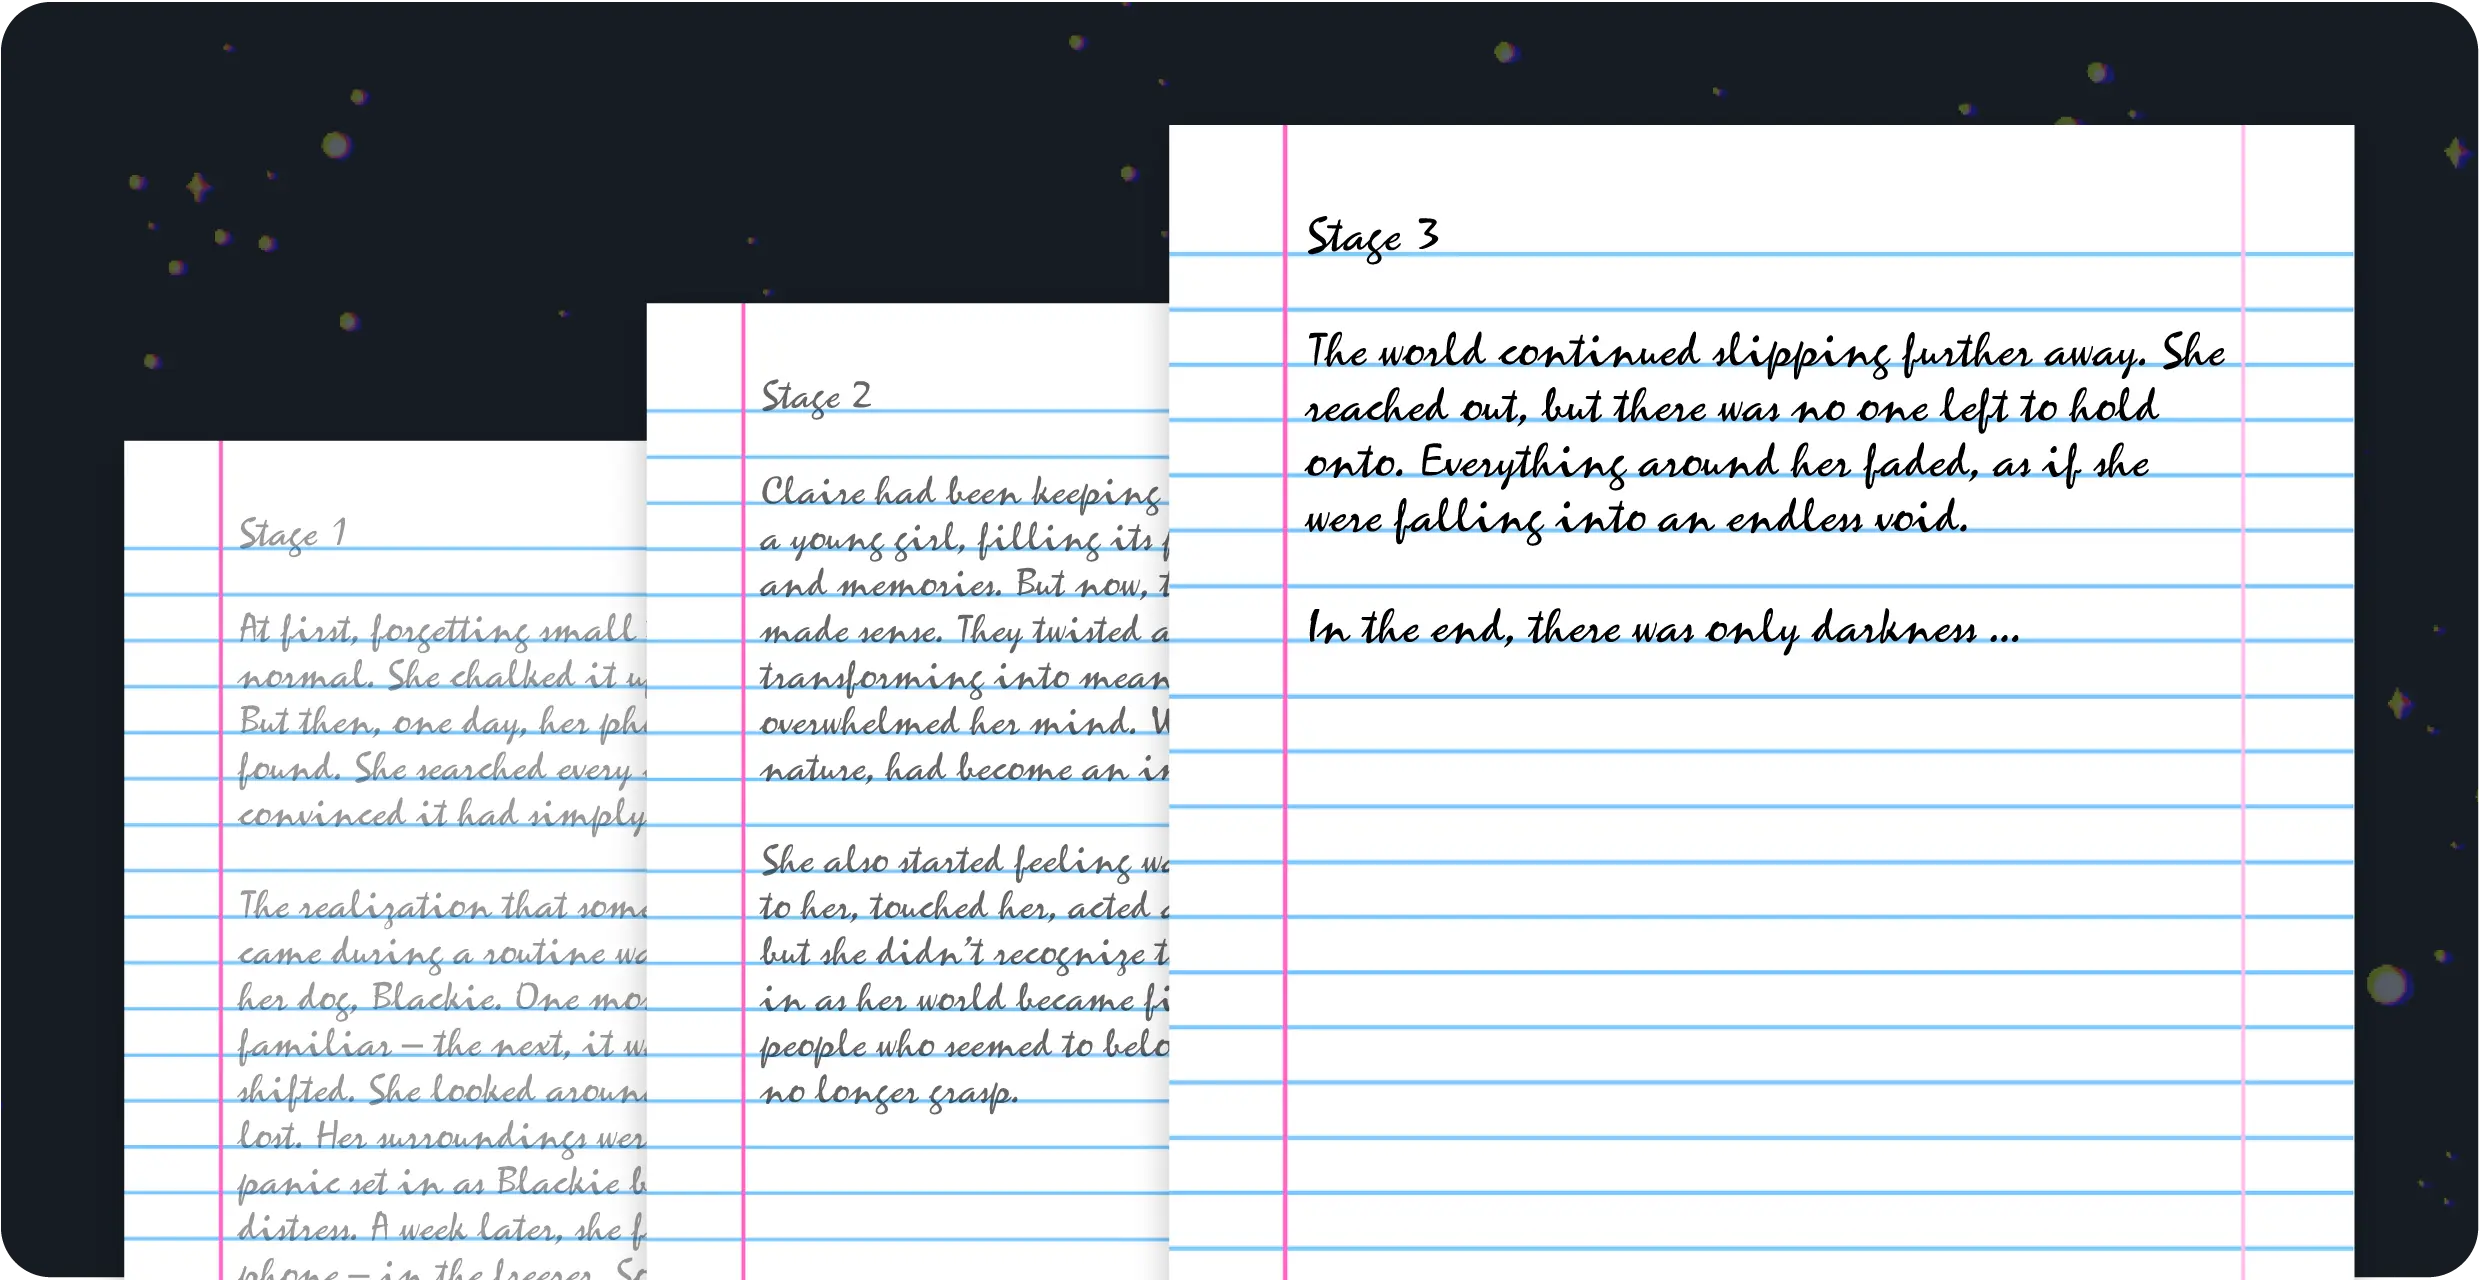 Stage 1
At first, forgetting small
normal. She chalked it
But then, one day, her
found. She searched every
convinced it had simply
The realization that
came during a routine
her dog, Blackie. One
familiar – the next, it
shifted. She looked
lost. Her surroundings
panic set in as Blackie
distress. A week later, she
phone – in the freezer.
Stage 2
Claire had been keeping
a young girl, filling its
and memories. But now,
made sense. They twisted
transforming into
overwhelmed her mind.
nature, had become an
She also started feeling
to her, touched her, acted
but she didn't recognize
in as her world became
people who seemed to
no longer grasp.
Stage 3
The world continued slipping further away. She
reached out, but there was no one left to hold
onto. Everything around her faded, as if she
were falling into an endless void.
In the end, there was only darkness ...